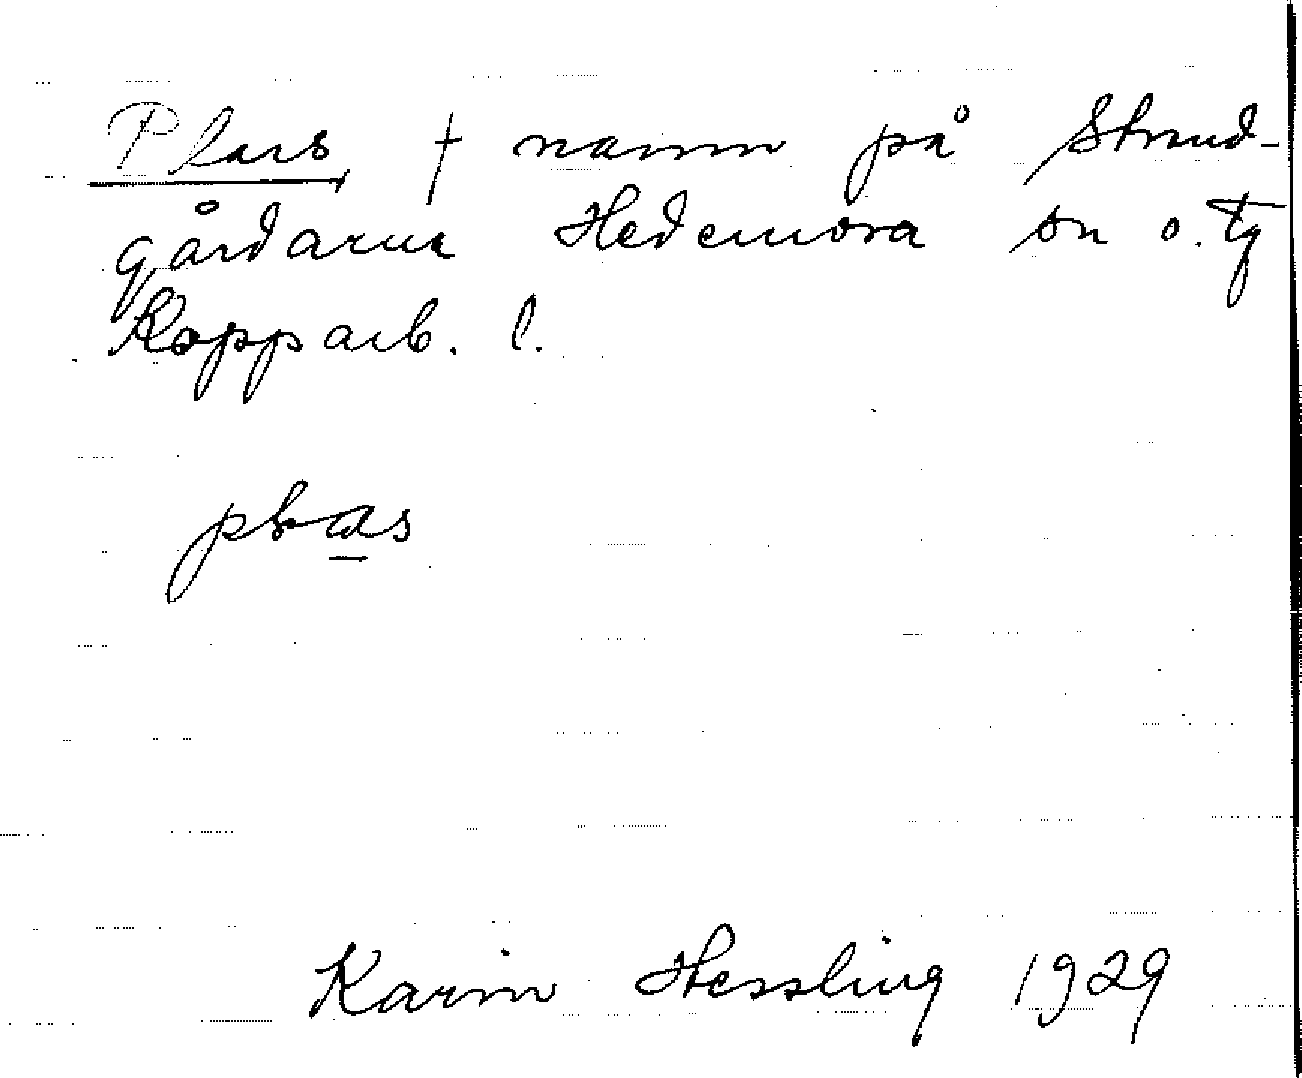 Plars, † namn på Strand-
gårdarna Hedemora sn o. tg
Kopparb. l.
plas
Karin Hessling 1929